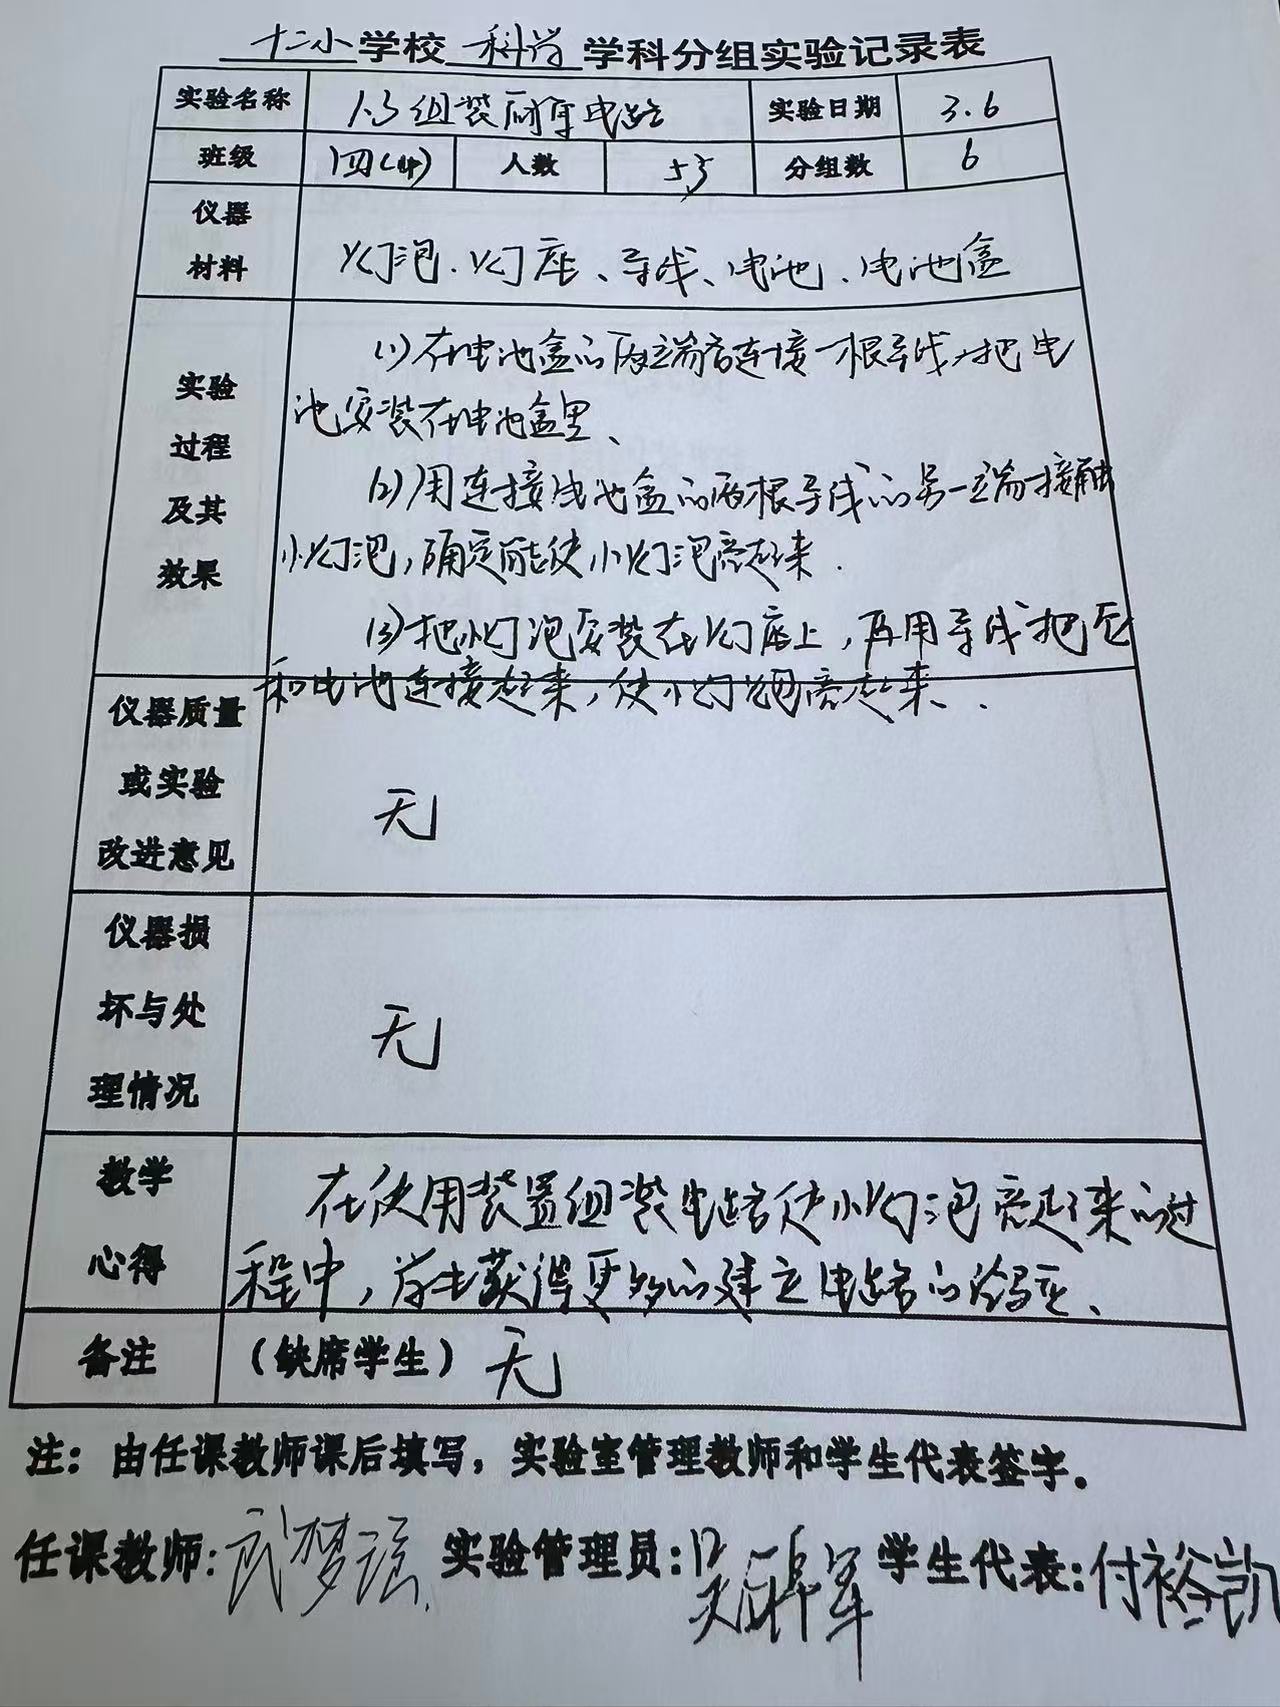 十二小学校 科学 学科分组实验记录表
实验名称 1.3组装简单电路 实验日期 3.6
班级 四(4) 人数 53 分组数 6
仪器
材料 灯泡、灯座、导线、电池、电池盒
实验
过程
及其
效果
(1)在电池盒的两端各连接一根导线,把电
池安装在电池盒里、
(2)用连接电池盒的两根导线的另一端接触
小灯泡,确定能使小灯泡亮起来.
(3)把小灯泡安装在灯座上,再用导线把它
和电池连接起来,使小灯泡亮起来、.
仪器质量
或实验
改进意见
无
仪器损
坏与处
理情况
无
教学
心得
在使用装置组装电路使小灯泡亮起来的过
程中,学生获得更多的建立电路的
备注 (缺席学生) 无
注:由任课教师课后填写,实验室管理教师和学生代表签字。
任课教师:武梦瑶 实验管理员: 学生代表:付裕凯